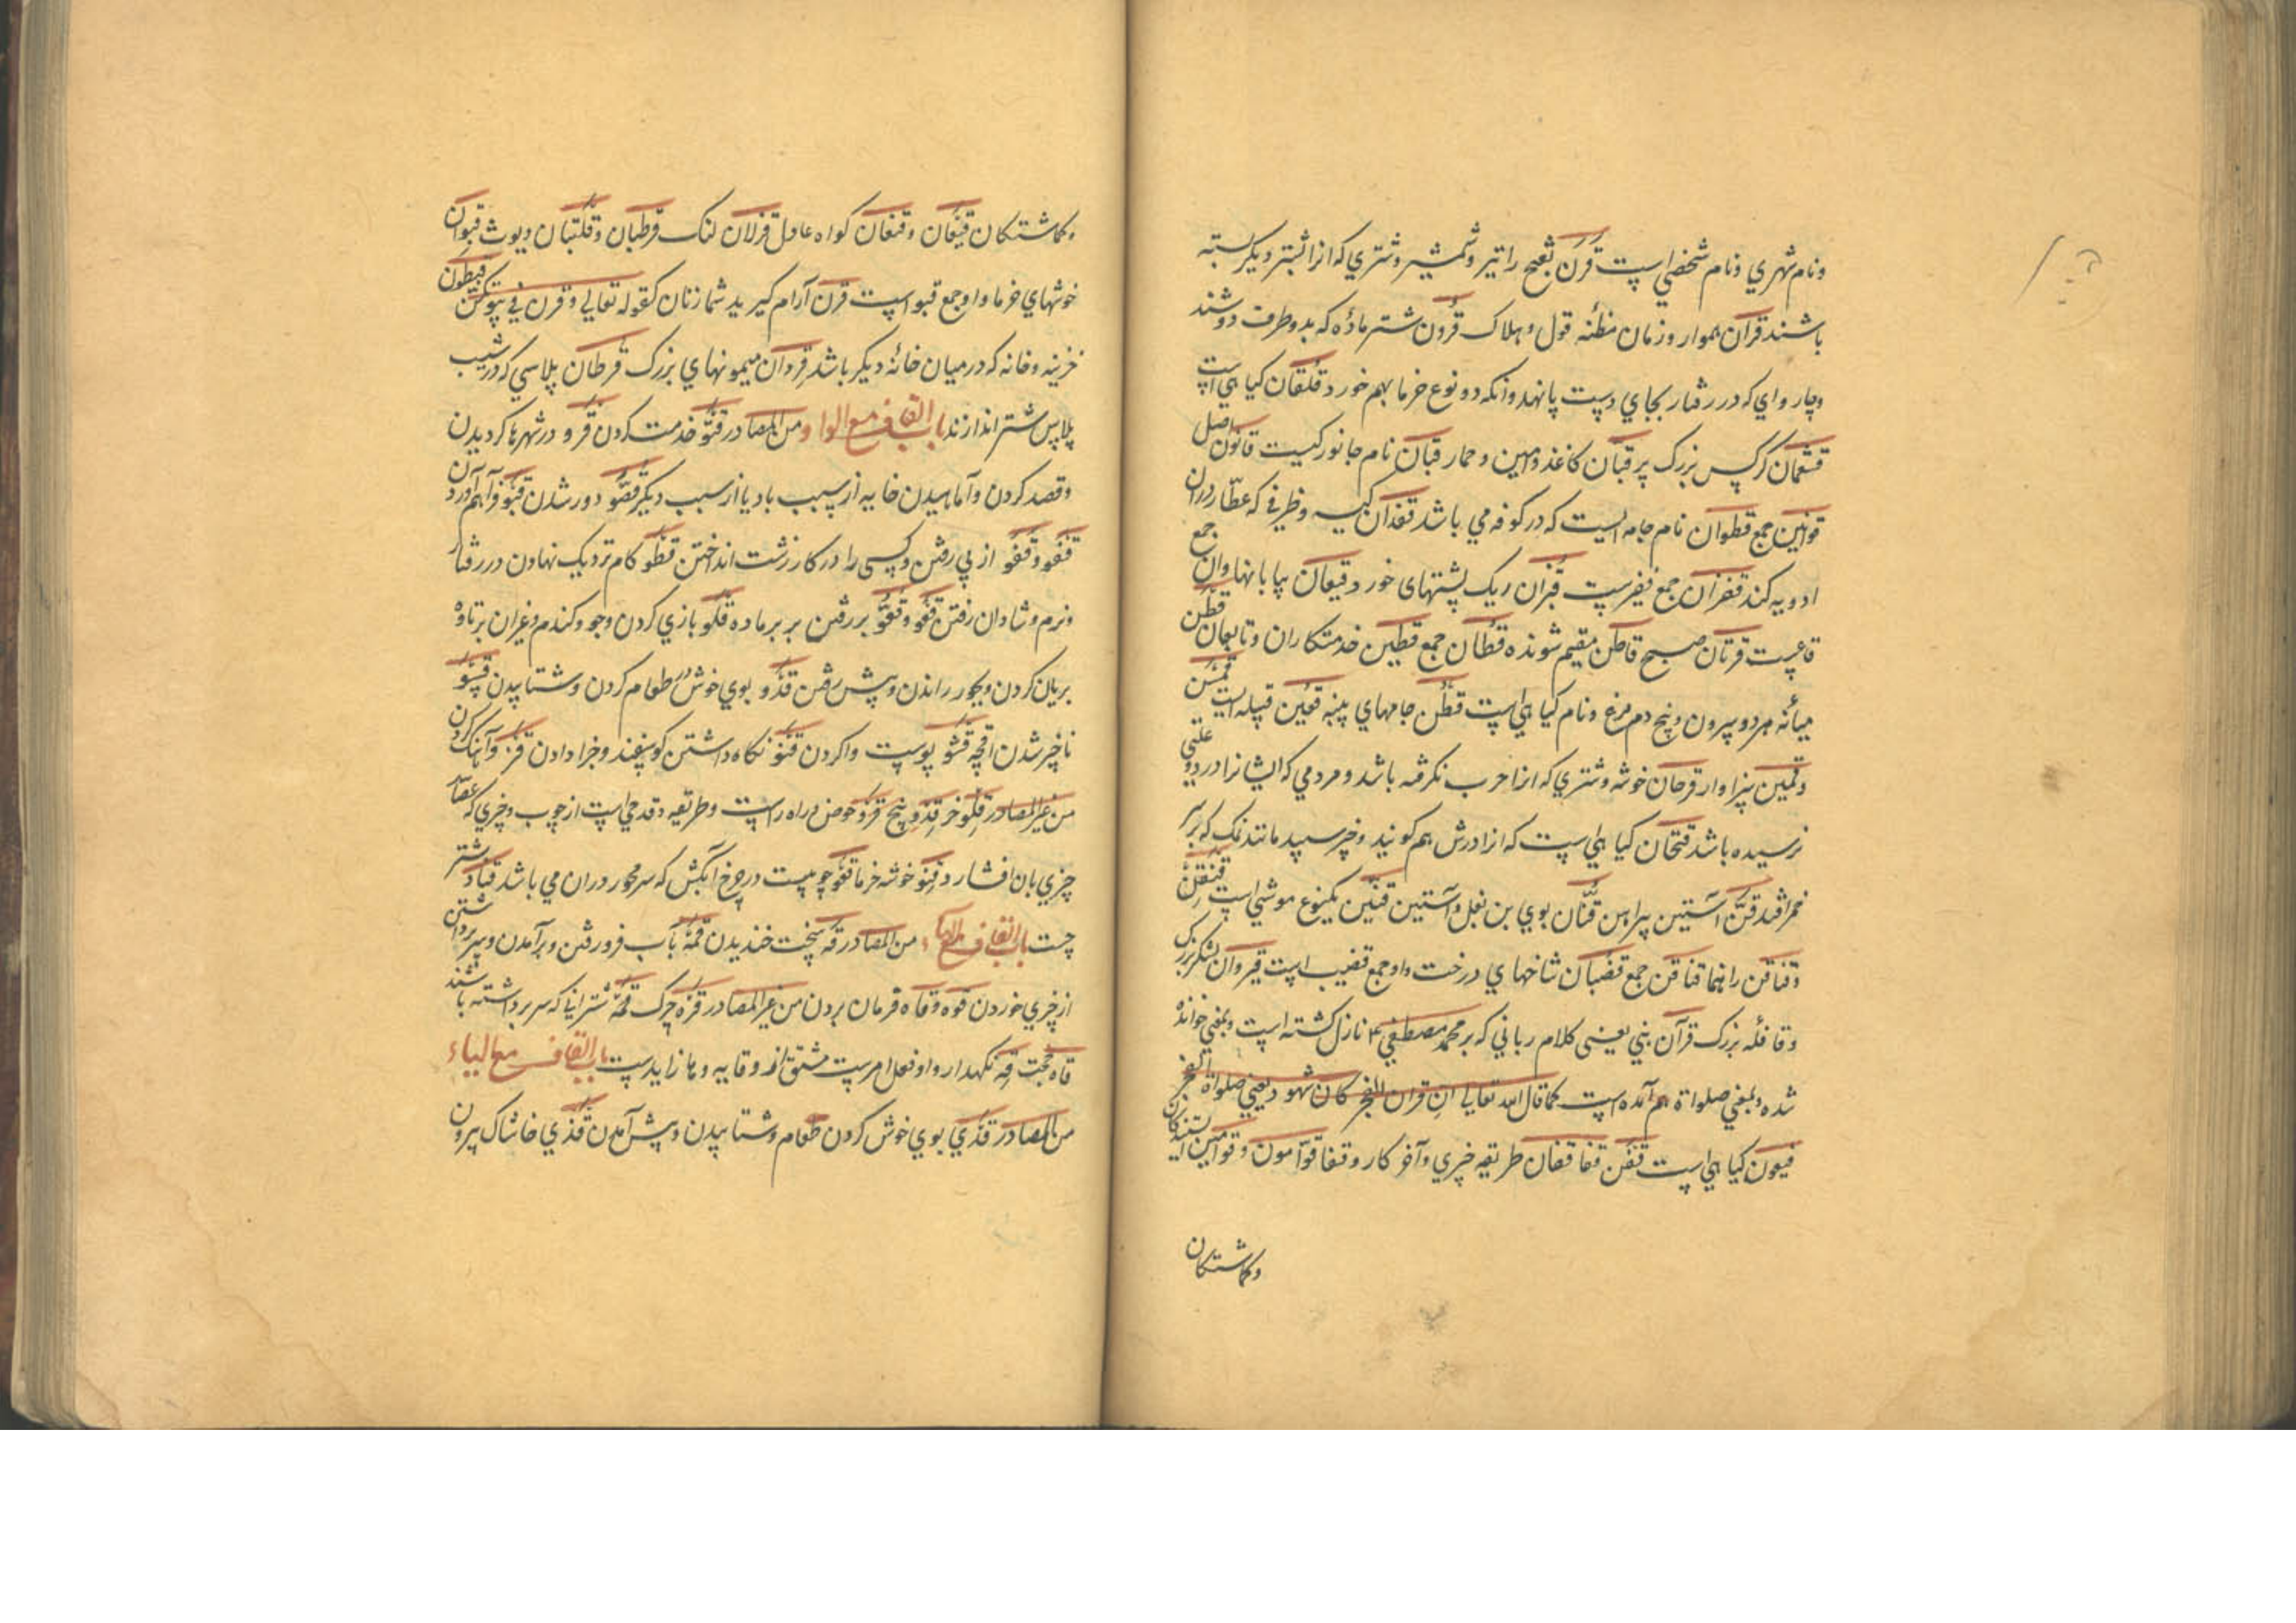 ونام شهري ونام شخصي است قرن بفتح را تیر وشمشیر وشتري که انرا بشتر دیکر بسته
باشند قرآن هموار وزمان مظنه قول وهلاک قرون شتر ماده که بدو طرف دوشند
وچار واي که در رفتار بجاي دست پا نهد وانکه دو نوع خرما بهم خورد قلقان کیا هي است
قشعمان کرکس بزرک پر قبان کاغذ وامین وحمار قبان نام جانورکیست قانون اصل
قوانین جمع قطوان نام جامه ایست که در کوفه مي باشد قفدان کیسه وظرفي که عطار دران
ادویه کند قفزان جمع قفیز است قزان ریک پشتهای خورد قیعان بیابانها وان جمع
قاعست قرتان صبح قاطن مقیم شونده قطان جمع قطین خدمتکاران وتابعان قطن
میانه هر دو سرون وبیخ دم مرغ ونام کیا هي است قطن جامهاي پنبه قعین قبیله است قمن
وقمین سزاوار قرحان خوشه وشتري که انرا حرب نکرفته باشد ومردمي که ایشانرا درد وعلتي
نرسیده باشد قتحان کیا هي است که انرا درش هم کویند وخبر سپید مانند نمک که بر سر
خمر افتد قن آستین پیراهن قنان بوي بن بغل وآستین قنین یکنوع موشي است قنقن
وقناقن راهنما قناقن جمع قضبان شاخهاي درخت واو جمع قضیب است قیروان لشکر بزرک
وقافله بزرک قرآن نبي یعنی کلام رباني که بر محمد مصطفي م نازل کشته است وبمعني خوانده
شده وبمعني صلواة هم آمده است کما قال الله تعالي ان قران الفجر کان مشهودا یعني صلواة الفجر
قیعون کیا هي است قفن قفا قفان طریقه چیزي وآخر کار وقفا قوامون وقوامین ایستندکان
وکماشتکان
وکماشتکان قنعان وقنعان کواه عادل قزلان لنک قرطبان وقلتبان دیوث قنوان
خوشهاي خرما واو جمع قنو است قرن آرام کیرید شما زنان کقوله تعالي وقرن في بیوتکن قیطون
خزینه وخانه که در میان خانه دیکر باشد قردان میمونهاي بزرک قرطان پلاسي که در شیب
پلاس شتر اندازند باب القاف مع الواو من المصادر قتو خدمت کردن قرو در شهرها کردیدن
وقصد کردن وآماهیدن خایه از سبب باد یا از سبب دیکر قصو دور شدن قبو فراهم آوردن
قفو وقفو از پي رفتن وکسی را در کار زشت انداختن قطو کام نزدیک نهادن در رفتار
ونرم وشادان رفتن قعو وقعو بر رفتن بر بر ماده قلو بازي کردن وجو وکندم وغیران بر تاوه
بریان کردن وبکور راندن وپیش رفتن قدو بوي خوش طعام کردن وشتابیدن قسو
ناچیز شدن اقچه قشو پوست واکردن قنو نکاه داشتن کوسفند وجزا دادن قزو آهنک کردن
من غیر المصادر قلو خر قدو بیخ قرو حوض دراه راست وطریقه وقدحي است از چوب وچیزي که عصار
چیزي بان افشارد قنو خوشه خرما قعو چوبیست در چرخ آبکش که سر محور دران مي باشد قناد شتر
چست باب القاف مع الهاء من المصادر قه سخت خندیدن قمه بآب فرو رفتن وبرآمدن وسر برداشتن
از چیزي خوردن قوه وقاه فرمان بردن من غیر المصادر قره چرک قمه شتراني که سر برداشته باشند
قاه حجت قه نکهدار واو فعل امر است مشتق از وقایه وها زاید است باب القاف مع الیاء
من المصادر قدي بوي خوش کردن طعام وشتابیدن وپیش آمدن قذي خاشاک بیرون